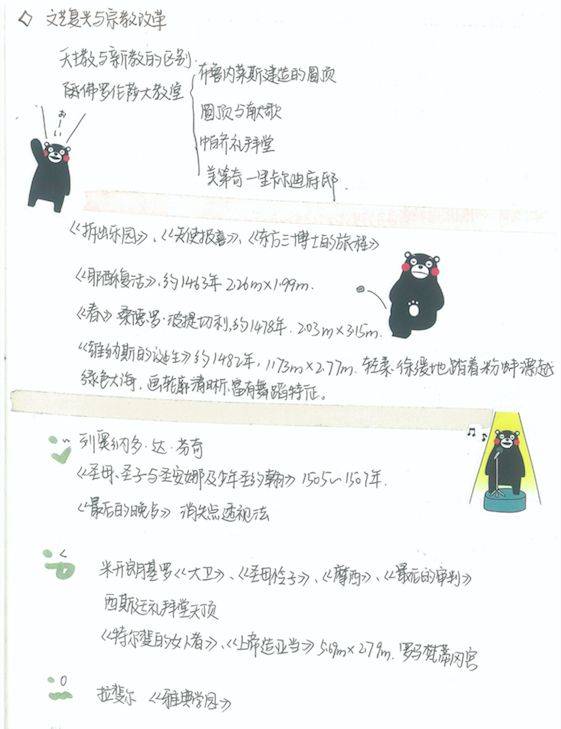 文艺复兴与宗教改革
天主教与新教的区别.
佛罗伦萨大教堂
布鲁内莱斯建造的圆顶
圆顶与献歌
帕齐礼拜堂
美第奇一里卡尔迪府邸.
お~い
《拆出乐园》、《天使报喜》、《东方三博士的旅程》
《耶稣复活》,约1463年 2.26m×1.99m.
《春》桑德罗·波提切利,约1478年. 2.03m×3.15m.
《维纳斯的诞生》约1482年, 1.73m×2.77m. 轻柔、徐缓地踏着粉蚌漂越
绿色大海. 画轮廓清晰.富有舞蹈特征。
列奥纳多·达·芬奇
《圣母、圣子与圣安娜及少年圣约翰》1505~1507年.
《最后的晚餐》 消失点透视法
米开朗基罗《大卫》、《圣母怜子》、《摩西》、《最后的审判》
西斯廷礼拜堂天顶
《特尔斐的女人者》、《上帝造亚当》5.69m×2.79m. 罗马梵蒂冈宫
拉斐尔 《雅典学园》